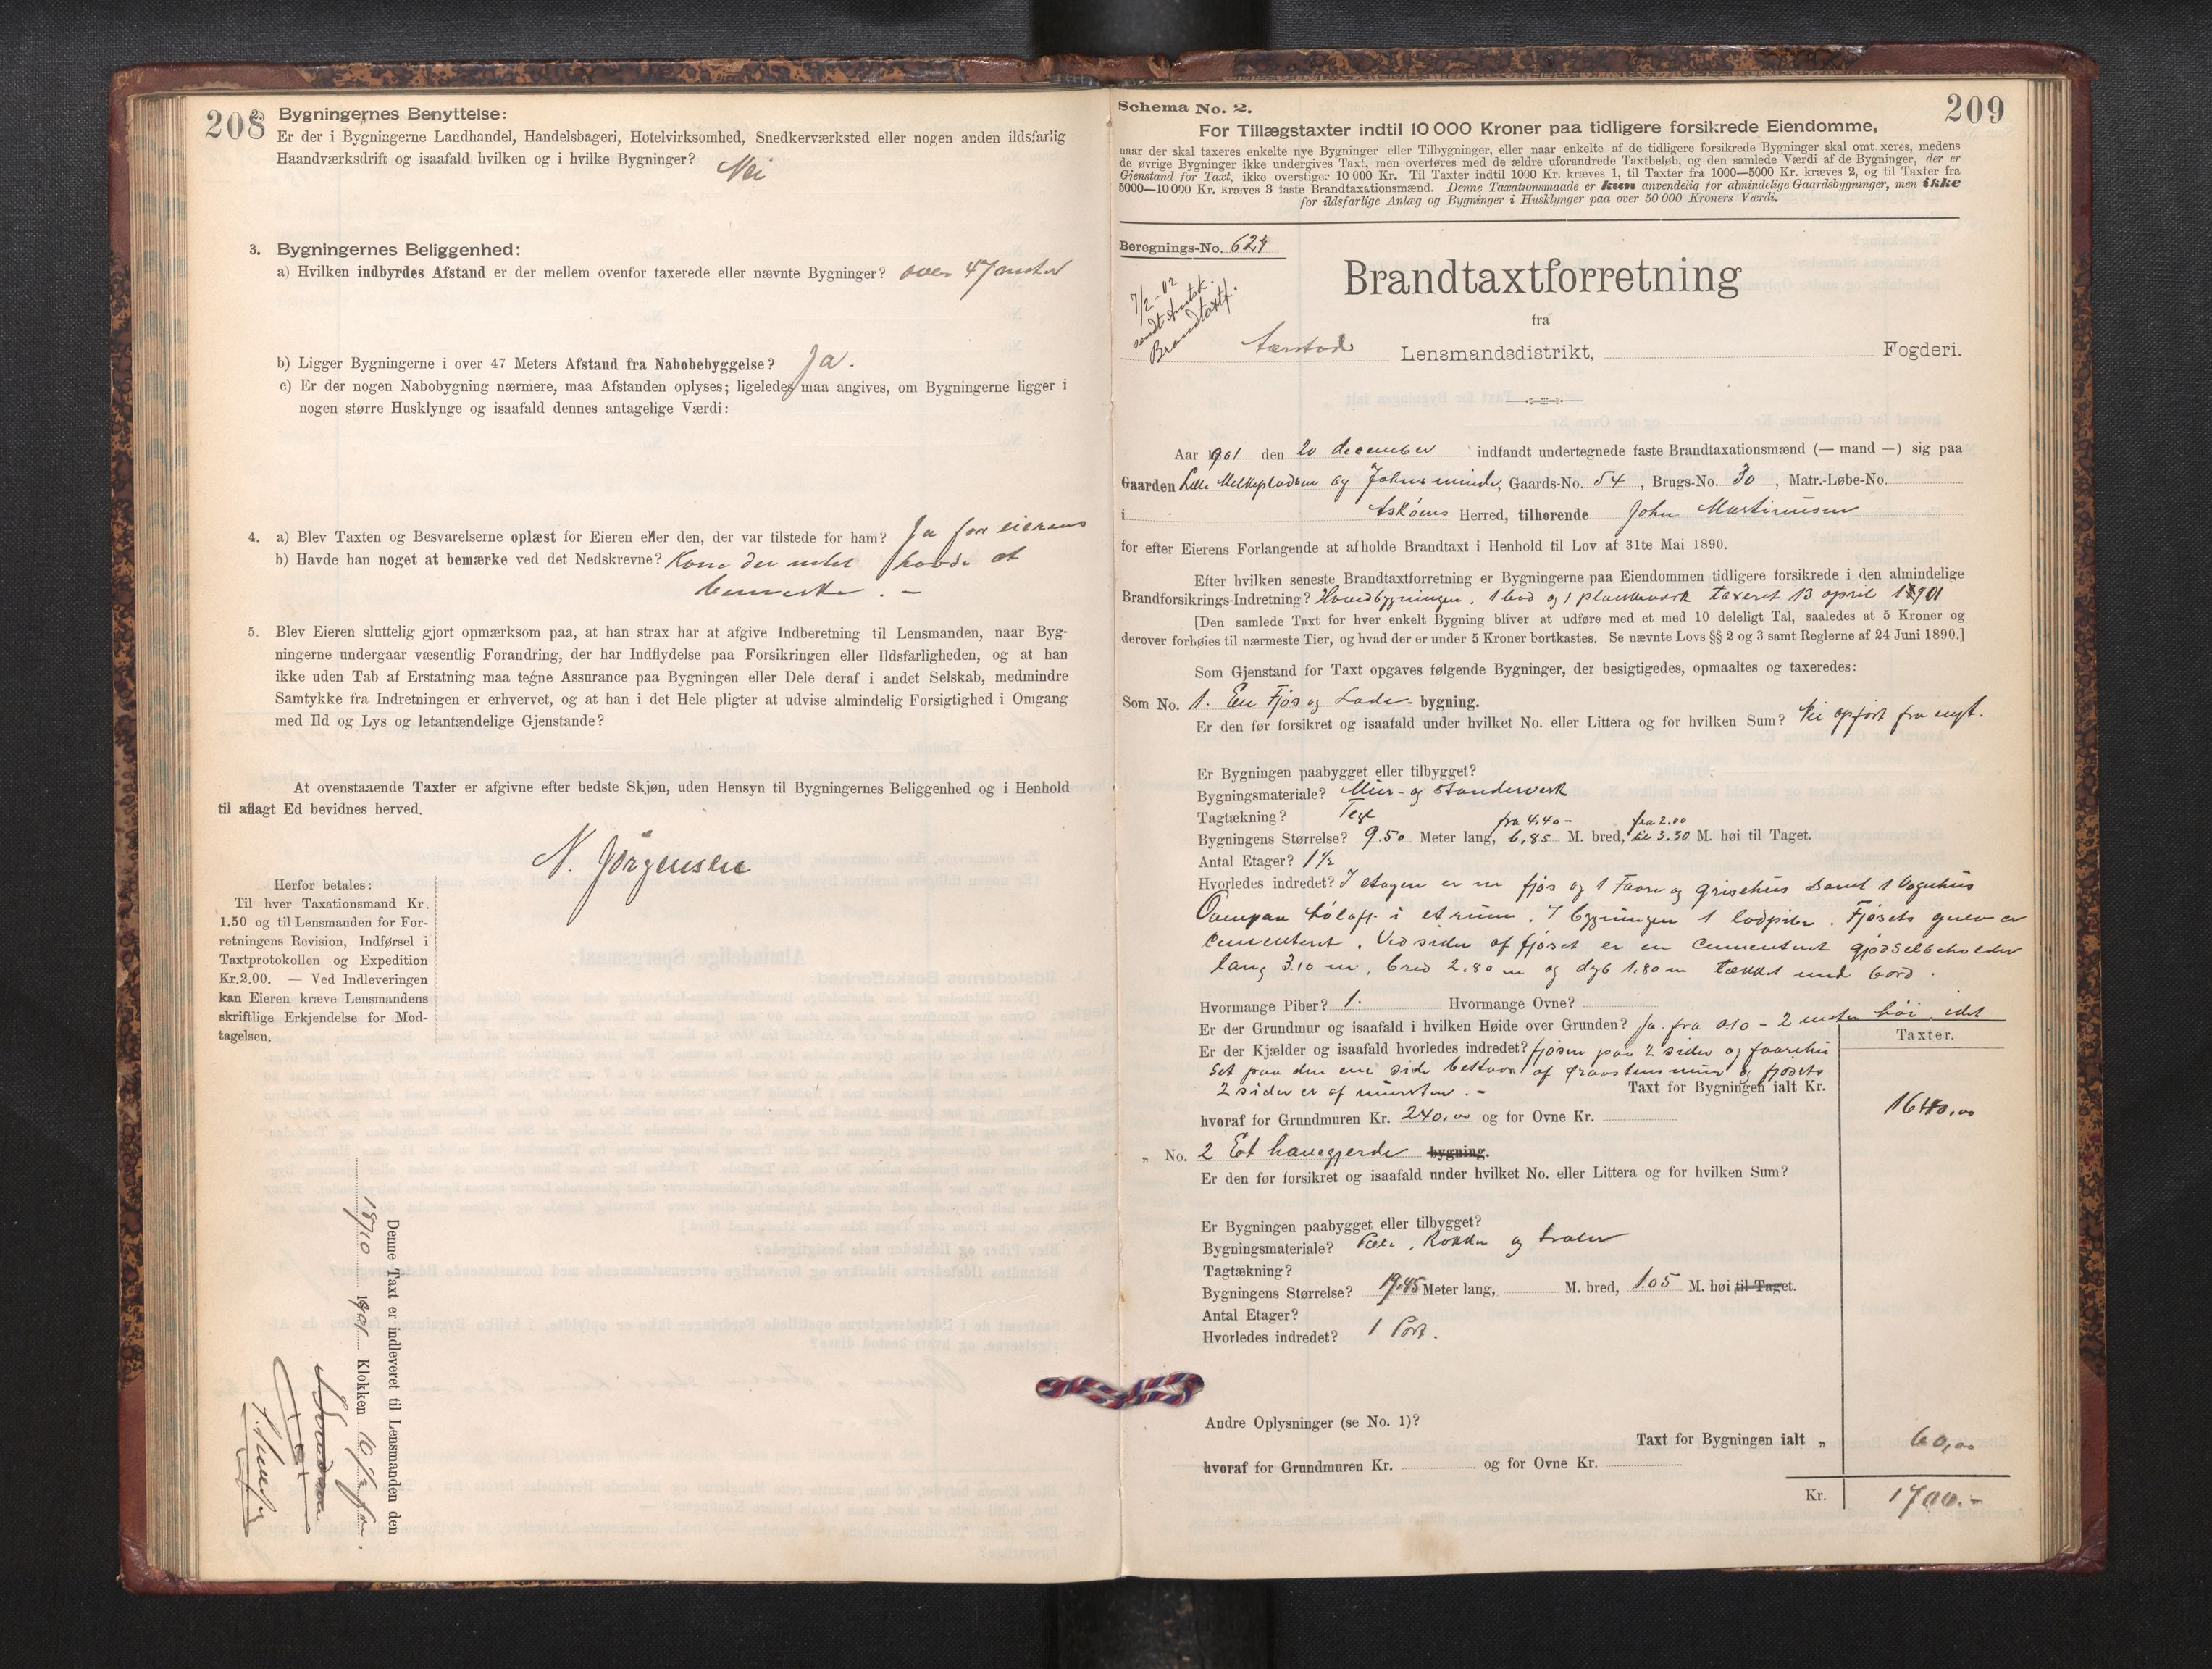 208
2. Bygningernes Benyttelse:
Er der i Bygningerne Landhandel, Handelsbageri, Hotelvirksomhed, Snedkerværksted eller nogen anden ildsfarlig
Haandværksdrift og isaafald hvilken og i hvilke Bygninger? Nei
3. Bygningernes Beliggenhed:
a) Hvilken indbyrdes Afstand er der mellem ovenfor taxerede eller nævnte Bygninger? over 47 meter
b) Ligger Bygningerne i over 47 Meters Afstand fra Nabobebyggelse? Ja.
c) Er der nogen Nabobygning nærmere, maa Afstanden oplyses; ligeledes maa angives, om Bygningerne ligger i
nogen større Husklynge og isaafald dennes antagelige Værdi:
4. a) Blev Taxten og Besvarelserne oplæst for Eieren eller den, der var tilstede for ham? Ja for eierens
b) Havde han noget at bemærke ved det Nedskrevne? Kone der intet havde at
bemerke. —
5. Blev Eieren sluttelig gjort opmærksom paa, at han strax har at afgive Indberetning til Lensmanden, naar Byg-
ningerne undergaar væsentlig Forandring, der har Indflydelse paa Forsikringen eller Ildsfarligheden, og at han
ikke uden Tab af Erstatning maa tegne Assurance paa Bygningen eller Dele deraf i andet Selskab, medmindre
Samtykke fra Indretningen er erhvervet, og at han i det Hele pligter at udvise almindelig Forsigtighed i Omgang
med Ild og Lys og letantændelige Gjenstande?
At ovenstaaende Taxter er afgivne efter bedste Skjøn, uden Hensyn til Bygningernes Beliggenhed og i Henhold
til aflagt Ed bevidnes herved.
N. Jørgensen
Herfor betales:
Til hver Taxationsmand Kr.
1.50 og til Lensmanden for For-
retningens Revision, Indførsel i
Taxtprotokollen og Expedition
Kr.2.00. — Ved Indleveringen
kan Eieren kræve Lensmandens
skriftlige Erkjendelse for Mod-
tagelsen.
Denne Taxt er indleveret til Lensmanden den
1901 Klokken
209
Schema No. 2.
For Tillægstaxter indtil 10 000 Kroner paa tidligere forsikrede Eiendomme,
naar der skal taxeres enkelte nye Bygninger eller Tilbygninger, eller naar enkelte af de tidligere forsikrede Bygninger skal omtaxeres, medens
de øvrige Bygninger ikke undergives Taxt, men overføres med de ældre uforandrede Taxtbeløb, og den samlede Værdi af de Bygninger, der er
Gjenstand for Taxt, ikke overstiger 10 000 Kr. Til Taxter indtil 1000 Kr. kræves 1, til Taxter fra 1000—5000 Kr. kræves 2, og til Taxter fra
5000—10 000 Kr. kræves 3 faste Brandtaxationsmænd. Denne Taxationsmaade er kun anvendelig for almindelige Gaardsbygninger, men ikke
for ildsfarlige Anlæg og Bygninger i Husklynger paa over 50 000 Kroners Værdi.
Beregnings-No. 624
7/2-02
sendt
Brandtaxtf.
Brandtaxtforretning
fra
Aarstad Lensmandsdistrikt, Fogderi.
Aar 1901 den 20 december indfandt undertegnede faste Brandtaxationsmænd (— mand —) sig paa
Gaarden Lille Melkepladsen og Johnsminde, Gaards-No. 54, Brugs-No. 30, Matr.-Løbe-No.
i Askøens Herred, tilhørende John Martinusen
for efter Eierens Forlangende at afholde Brandtaxt i Henhold til Lov af 31te Mai 1890.
Efter hvilken seneste Brandtaxtforretning er Bygningerne paa Eiendommen tidligere forsikrede i den almindelige
Brandforsikrings-Indretning? Hovedbygningen, 1 bod og 1 plankeverk taxeret 13 april 1901
[Den samlede Taxt for hver enkelt Bygning bliver at udføre med et med 10 deleligt Tal, saaledes at 5 Kroner og
derover forhøies til nærmeste Tier, og hvad der er under 5 Kroner bortkastes. Se nævnte Lovs §§ 2 og 3 samt Reglerne af 24 Juni 1890.]
Som Gjenstand for Taxt opgaves følgende Bygninger, der besigtigedes, opmaaltes og taxeredes:
Som No. 1. En Fjøs og Lade- bygning.
Er den før forsikret og isaafald under hvilket No. eller Littera og for hvilken Sum? Nei opført fra nyt.
Er Bygningen paabygget eller tilbygget?
Bygningsmateriale? Mur- og standerverk
Tagtækning? Tegl
fra 4.40 - fra 2.00
Bygningens Størrelse? 9.50 Meter lang, 6,85 M. bred, til 3.30 M. høi til Taget.
Antal Etager? 1½
Hvorledes indredet? I etagen er en fjøs og 1 Faare og grisehus samt 1 Vognhus
Ovenpaa høloft i et rum. I bygningen 1 lodpibe. Fjøsets gulv er
cementeret. Ved siden af fjøset er en cementeret gjødselbeholder
lang 3.10 m, bred 2.80 m og dyb 1.80 m tækket med bord.
Hvormange Piber? 1. Hvormange Ovne?
Er der Grundmur og isaafald i hvilken Høide over Grunden? Ja. fra 0.10 - 2 meter høi. idet
Er der Kjælder og isaafald hvorledes indredet? fjøsen paa 2 sider og faarehu
set paa den ene side bestaar af graastensmur og fjøsets
2 sider er af mursten. -
Taxter.
Taxt for Bygningen ialt Kr. 1640,00
hvoraf for Grundmuren Kr. 240,00 og for Ovne Kr.
„ No. 2 Et havegjerde bygning.
Er den før forsikret og isaafald under hvilket No. eller Littera og for hvilken Sum?
Er Bygningen paabygget eller tilbygget?
Bygningsmateriale? Pæle, Rokker og traler
Tagtækning?
Bygningens Størrelse? 19.85 Meter lang, M. bred, 1.05 M. høi til Taget.
Antal Etager?
Hvorledes indredet? 1 Port.
Andre Oplysninger (se No. 1)?
Taxt for Bygningen ialt „ 60,00
hvoraf for Grundmuren Kr. og for Ovne Kr.
Kr. 1700.-